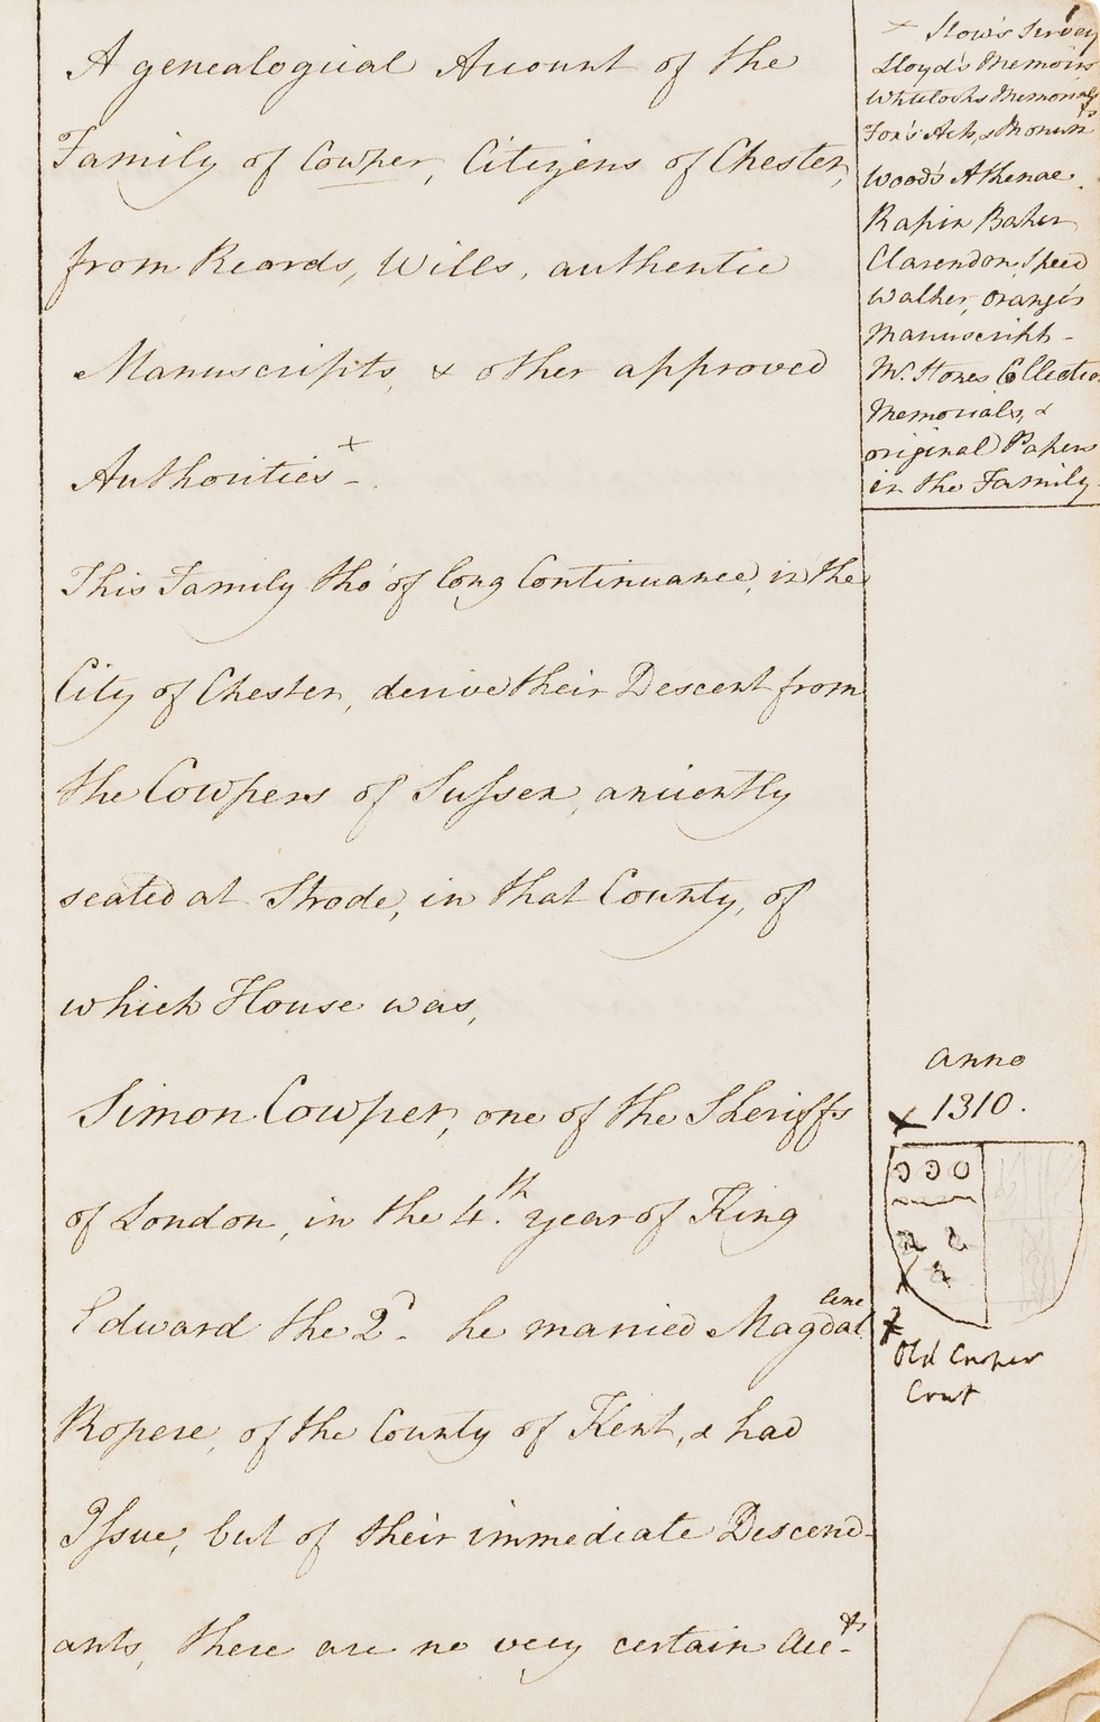 A genealogical Account of the
Family of Cowper, Citizens of Chester,
from Records, Wills, authentic
Manuscripts, & other approved
Authorities +
This Family tho' of long Continuance, in the
City of Chester, derive their Descent from
the Cowpers of Sussex, anciently
seated at Strode, in that County, of
which House was,
Simon Cowper, one of the Sheriffs
of London, in the 4.th year of King
Edward the 2d. he married Magdalene
Ropere, of the County of Kent, & had
Issue, but of their immediate Descend-
ants, there are no very certain Accts
1
+ Stow's Survey
Lloyd's Memoirs
Whitelocks Memorials
Fox's Acts, & Monumts
Wood's Athenae.
Rapin Baker
Clarendon, Speed
Walker, Orange's
Manuscripts -
Mr. Stones Collectio
Memorials, &
original Papers
in the Family
anno
x 1310.
Old Cowper